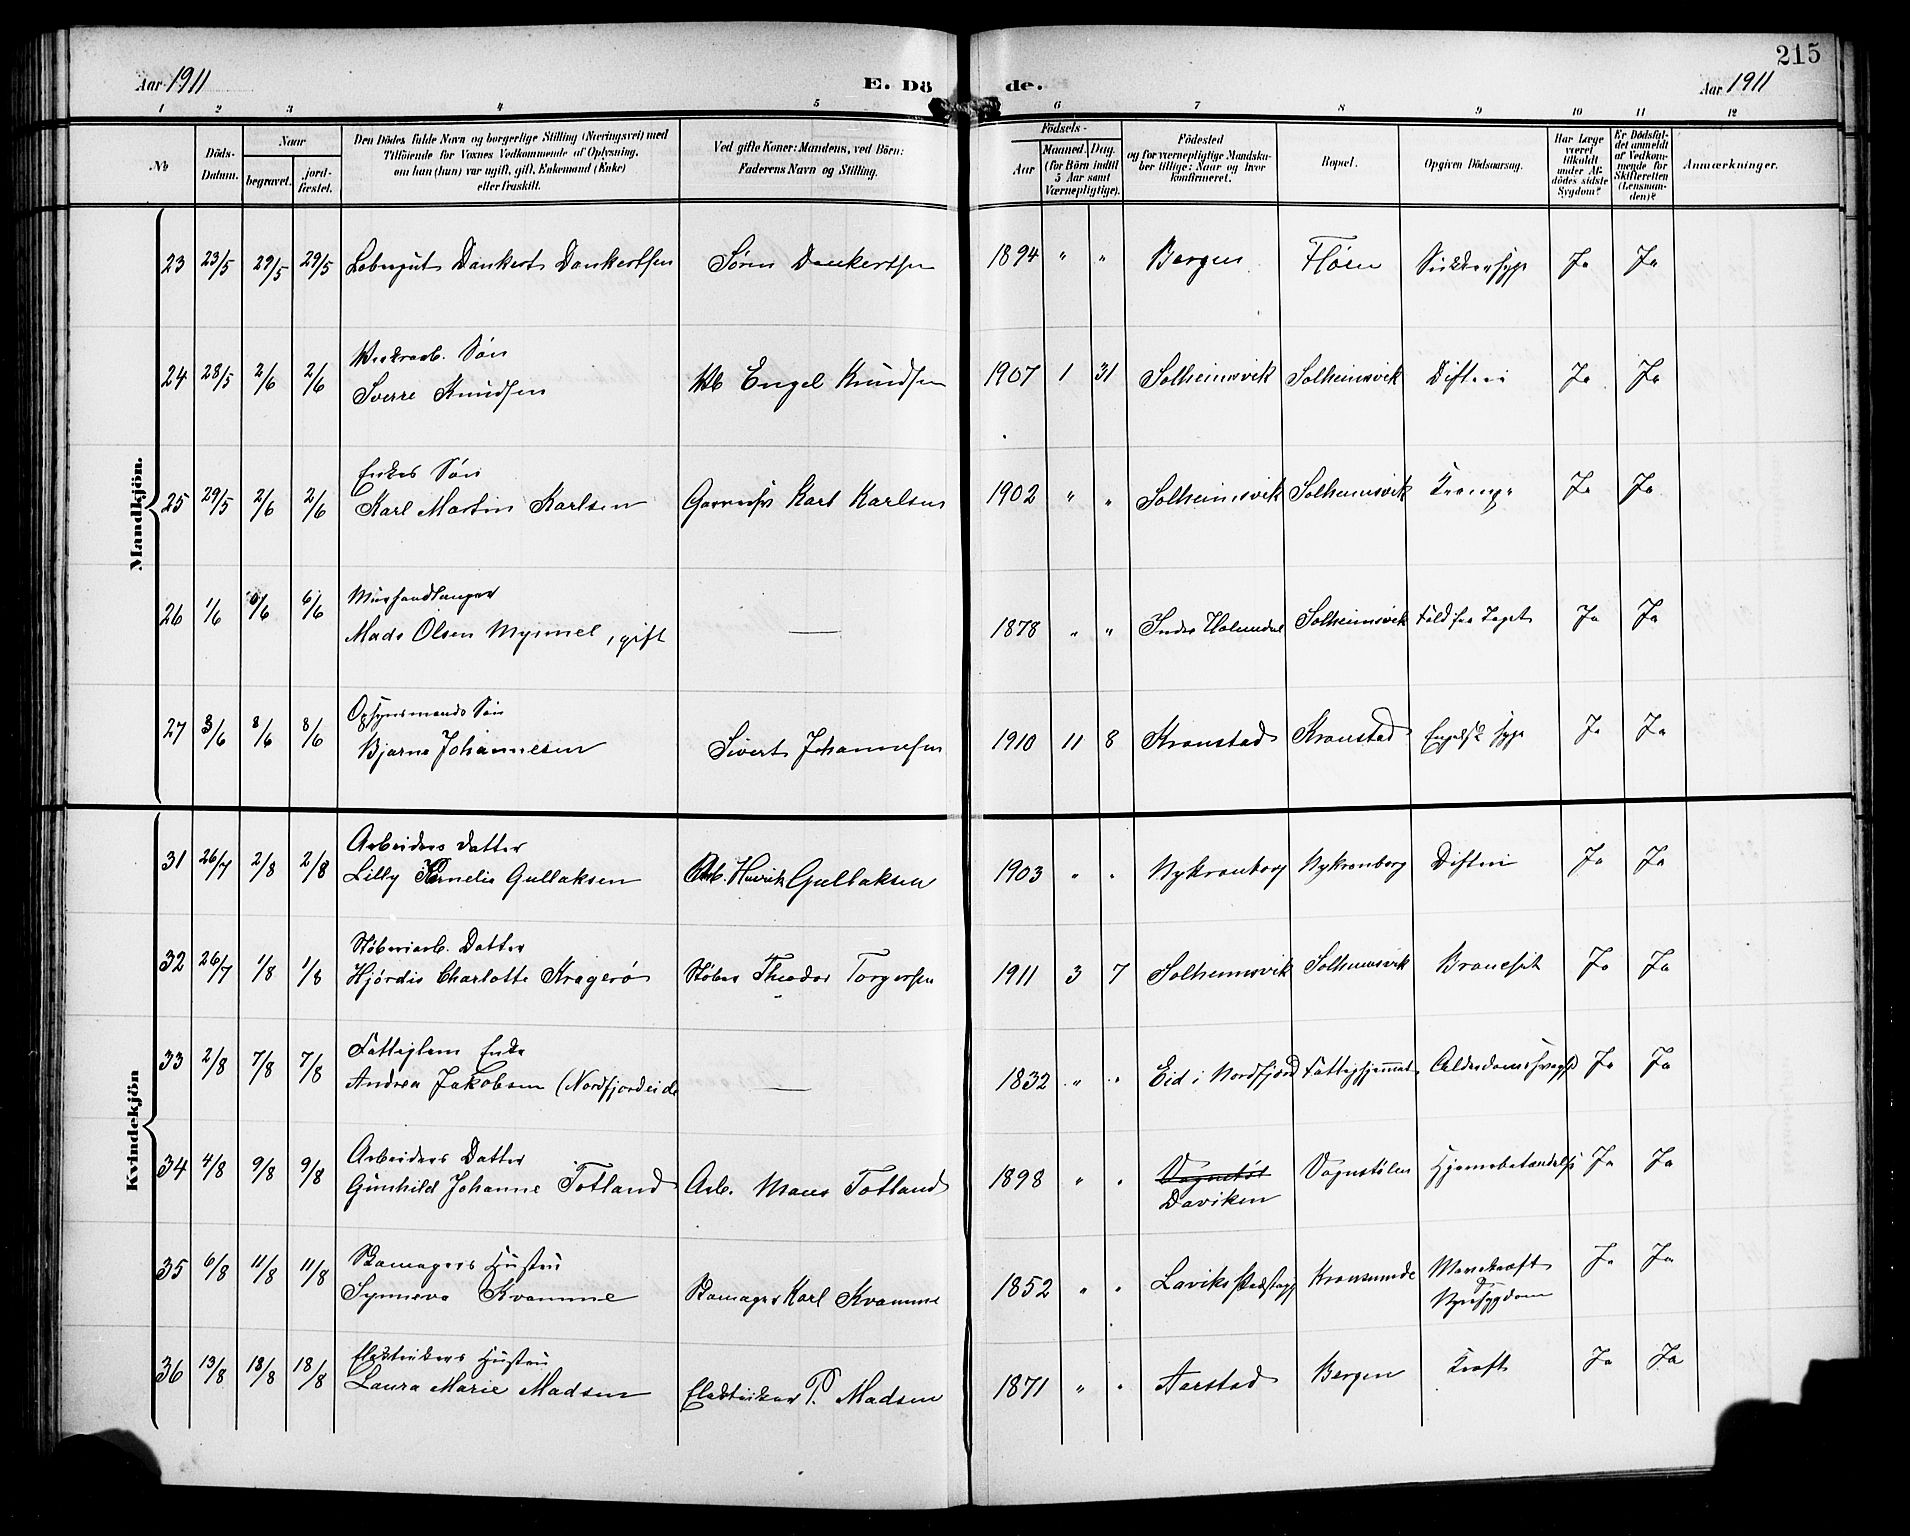 215
Aar 1911
E. Dö
de.
Aar 1911
1 2 3 4 5 6 7 8 9 10 11 12
No
Döds-Datum.
Naar
begravet.
jord-fæstet.
Den Dödes fulde Navn og borgerlige Stilling (Næringsvei) med
Tilföiende for Voxnes Vedkommende af Oplysning,
om han (hun) var ugift, gift, Enkemand (Enke)
eller fraskilt.
Ved gifte Koner: Mandens, ved Börn:
Faderens Navn og Stilling.
Födsels-
Aar
Maaned. Dag.
(for Börn indtil
5 Aar samt
Værnepligtige).
Födested
og for værnepligtige Mandska-
ber tillige: Naar og hvor
konfirmeret.
Bopæl.
Opgiven Dödsaarsag.
Har Læge
været
tilkaldt
under Af-
dödes sidste
Sygdom?
Er Dödsfal-
det anmeldt
af Vedkom-
mende for
Skifteretten
(Lensman-
den)?
Anmærkninger.
Mandkjön.
23 23/5 29/5 29/5 Løbergut Dankert Dankertsen Søren Dankertsen 1894 " " Bergen Florø Sukkersyge Ja Ja
24 28/5 2/6 2/6 Søn
Sverre Knudsen Engel Knudsen 1907 1 31 Solheimsvik Solheimsvik Difteri Ja Ja
25 29/5 2/6 2/6 Enkes Søn
Karl Martin Karlsen Karl Karlsen 1902 " " Solheimsvik Solheimsvik Krampe Ja Ja
26 1/6 6/6 6/6 Murhandlanger
Mads Olsen Myrmel, gift — 1878 " " Indre Holmedal Solheimsvik Fald fra Taget Ja Ja
27 3/6 8/6 8/6 Opsynsmands Søn
Bjarne Johannesen Sivert Johannesen 1910 11 8 Kronstad Kronstad Engelsk Syge Ja Ja
Kvindekjön
31 26/7 2/8 2/8 Arbeiders Datter
Lilly Kornelia Gullaksen Arb. Henrik Gullaksen 1903 " " Nykronborg Nykronborg Difteri Ja Ja
32 26/7 1/8 1/8 Støberiarb. Datter
Hjørdis Charlotte Kragerø Støber Theodor Torgersen 1911 3 7 Solheimsvik Solheimsvik Broncsit Ja Ja
33 2/8 7/8 7/8 Fattiglem Enke
Andrea Jakobsen (Nordfjordeide — 1832 " " Eid i Nordfjord Fattighjemmet Alderdomssvaghed Ja Ja
34 4/8 9/8 9/8 Arbeiders Datter
Gunhild Johanne Totland Arb. Mons Totland 1898 " " Vognstøl
Daviken Vognstølen Hjernebetændelse Ja Ja
35 6/8 11/8 11/8 Skomagers Hustru
Synneva Kvamme Skomager Karl Kvamme 1852 " " Laviks Præstegj Kronminde Mavekræft
Nyresygdom Ja Ja
36 13/8 18/8 18/8 Elektrikers Hustru
Laura Marie Madsen Elektriker P. Madsen 1871 " " Aarstad Bergen Kræft Ja Ja